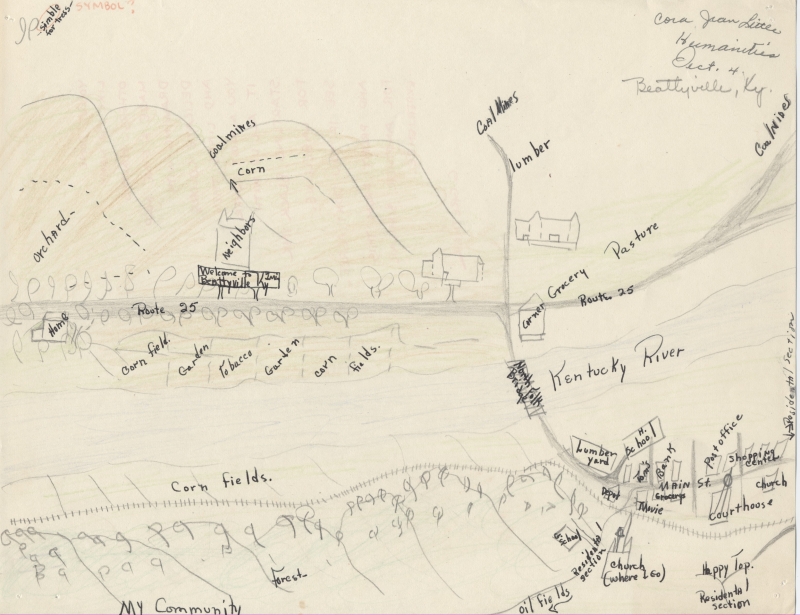 Simble
for trees
SYMBOL?
Cora Jean
Humanities
Oct. 4
Beattyville, Ky.
Coal Mines
lumber
Coal Mines
coalmines
corn
orchard
neighbors
Welcome to
Beattyville Ky
Home
Route 25
Corn field.
Garden
Tobacco
Garden
corn
fields.
Corner Grocery
Pasture
Route 25
Kentucky River
Residental Section
Lumber
yard
H.
School
Bank
Post office
Shopping
center
church
MAIN St.
Depot
Grocerys
Movie
courthouse
Corn fields.
School
Residental
section
church
(where I go)
Happy Top.
Residental
section
Forest
oil fields
My Community